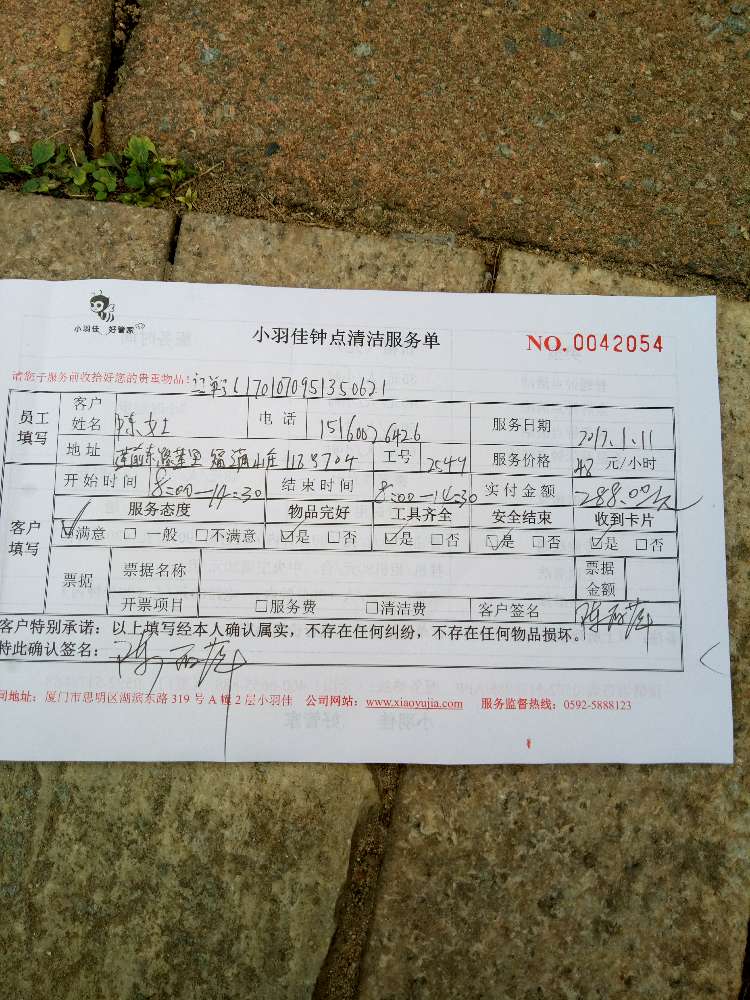 小羽佳 好管家
小羽佳钟点清洁服务单
NO. 0042054
请您于服务前收拾好您的贵重物品! 订单号617010709513506​21
员工填写 客户姓名 陈女士 电话 15160026426 服务日期 2017.1.11
地址 莲前东路 118号704 工号 2549 服务价格 48 元/小时
开始时间 8:00—14:30 结束时间 8:00—14:30 实付金额 288.00元
客户填写 服务态度 物品完好 工具齐全 安全结束 收到卡片
☑满意 □一般 □不满意 ☑是 □否 ☑是 □否 ☑是 □否 ☑是 □否
票据 票据名称 票据金额
开票项目 □服务费 □清洁费 客户签名
客户特别承诺:以上填写经本人确认属实,不存在任何纠纷,不存在任何物品损坏。
特此确认签名:
司地址:厦门市思明区湖滨东路 319 号 A 幢 2 层小羽佳 公司网站:www.xiaoyujia.com 服务监督热线:0592-5888123